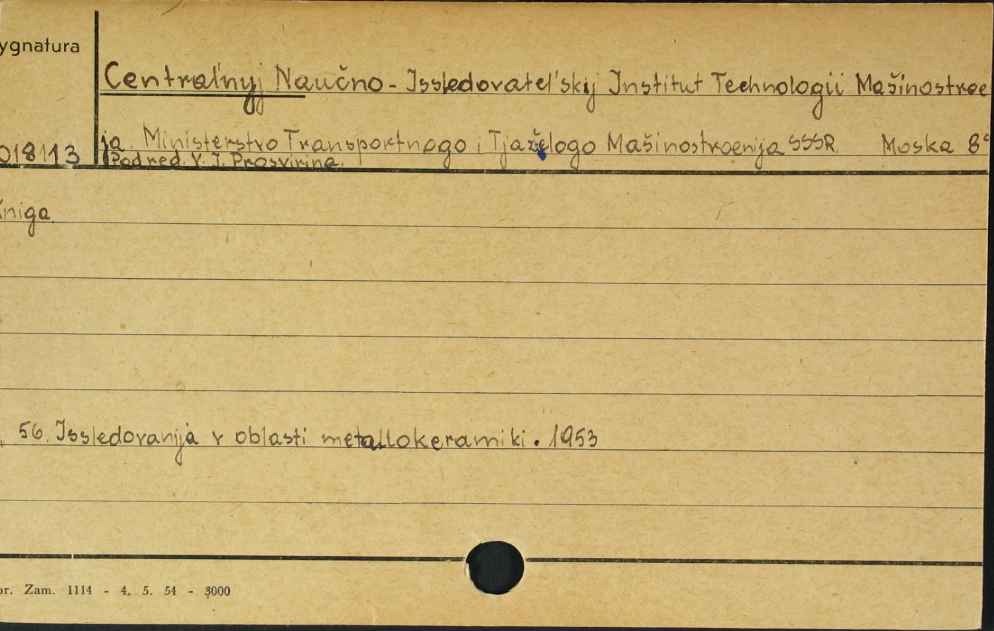 ygnatura
Centralnyj Naučno - Issledovatel'skij Institut Technologii Mašinostroe
018113 ja. Ministerstvo Transportnogo i Tjaželogo Mašinostroenija SSSR Moska 8°
Pod red. V. I. Prosvirina.
niga
56. Issledovanija v oblasti metallokeramiki. 1953
or. Zam. 1114 - 4. 5. 54 - 3000